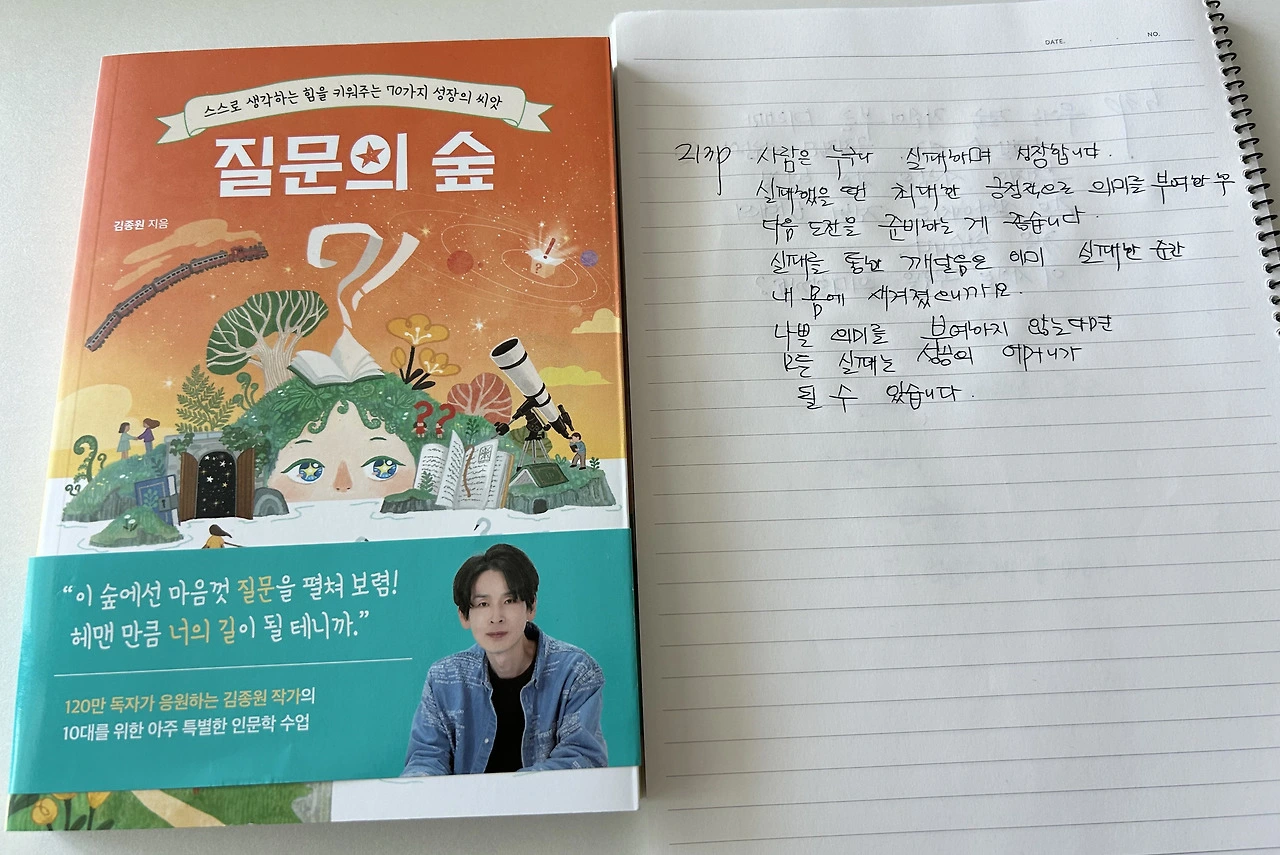 스스로 생각하는 힘을 키워주는 70가지 성장의 씨앗
질문의 숲
김종원 지음
“이 숲에선 마음껏 질문을 펼쳐 보렴!
헤맨 만큼 너의 길이 될 테니까.”
120만 독자가 응원하는 김종원 작가의
10대를 위한 아주 특별한 인문학 수업
DATE. NO.
217p 사람은 누구나 실패하며 성장합니다.
실패했을 땐 최대한 긍정적으로 의미를 부여한 후
다음 도전을 준비하는 게 좋습니다.
실패를 통한 깨달음은 이미 실패한 순간
내 몸에 새겨졌으니까요.
나쁜 의미를 부여하지 않는다면
모든 실패는 성공의 어머니가
될 수 있습니다.